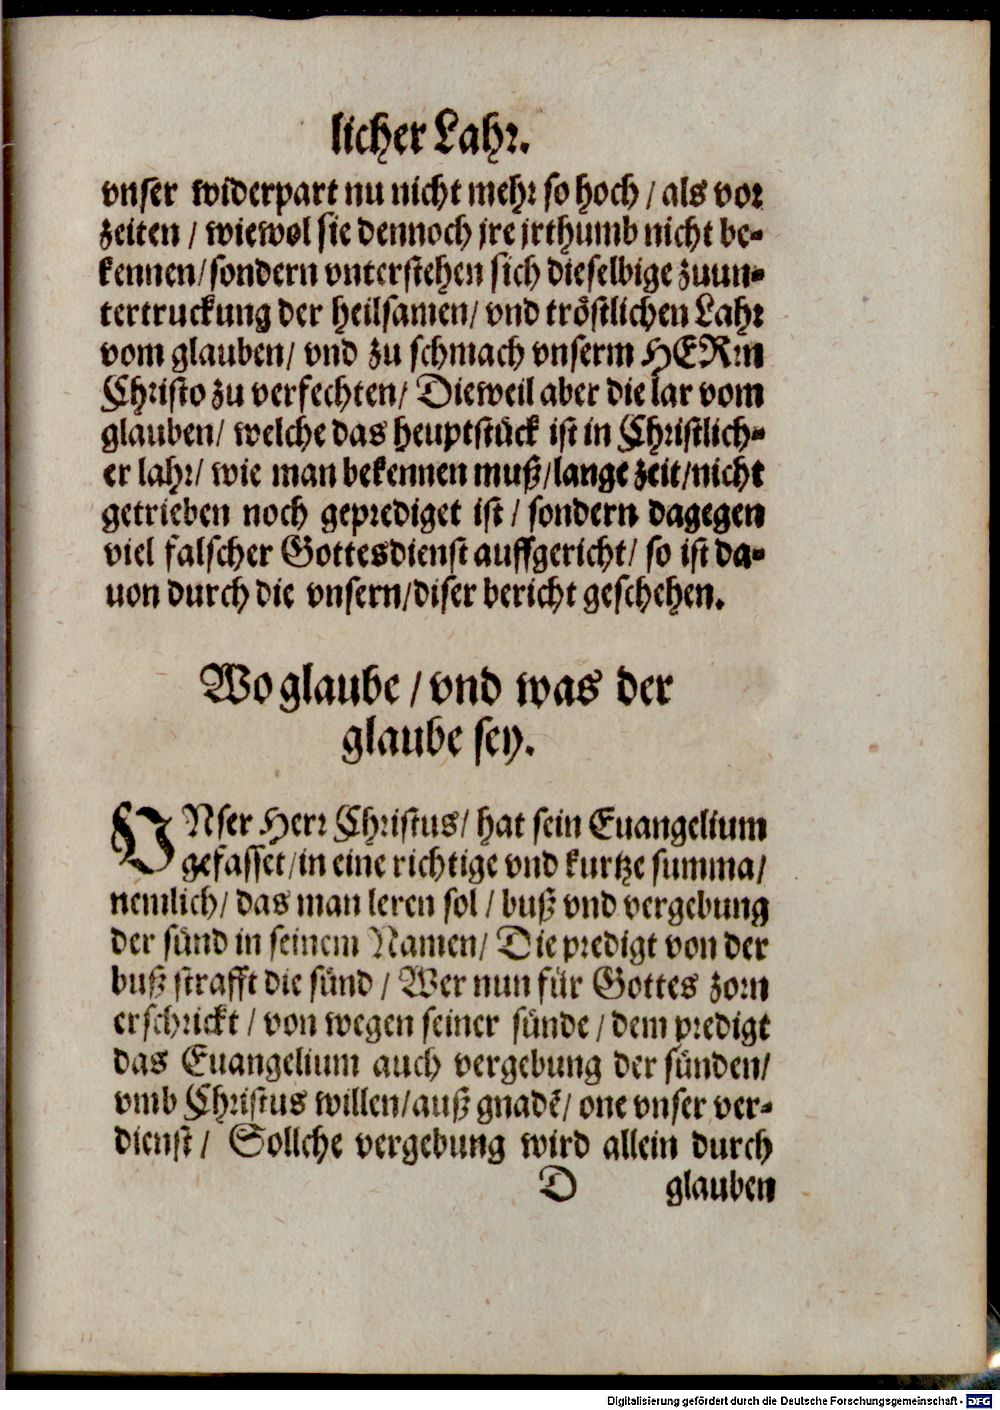 licher Lahr.
vnser widerpart nu nicht mehr so hoch / als vor
zeiten / wiewol sie dennoch jre jrthumb nicht be-
kennen/ sondern vnterstehen sich dieselbige zuun-
tertruckung der heilsamen/ vnd tröstlichen Lahr
vom glauben/ vnd zu schmach vnserm HERrn
Christo zu verfechten/ Dieweil aber die lar vom
glauben/ welche das heuptstück ist in Christlich-
er lahr/ wie man bekennen muß/ lange zeit/ nicht
getrieben noch geprediget ist / sondern dagegen
viel falscher Gottesdienst auffgericht/ so ist da-
uon durch die vnsern/ diser bericht geschehen.
Wo glaube / vnd was der
glaube sey.
VNser Herr Christus/ hat sein Euangelium
gefasset/ in eine richtige vnd kurtze summa/
nemlich/ das man leren sol / buß vnd vergebung
der sünd in seinem Namen/ Die predigt von der
buß strafft die sünd / Wer nun für Gottes zorn
erschrickt / von wegen seiner sünde / dem predigt
das Euangelium auch vergebung der sünden/
vmb Christus willen/ auß gnadē/ one vnser ver-
dienst / Sollche vergebung wird allein durch
D glauben
Digitalisierung gefördert durch die Deutsche Forschungsgemeinschaft - DFG